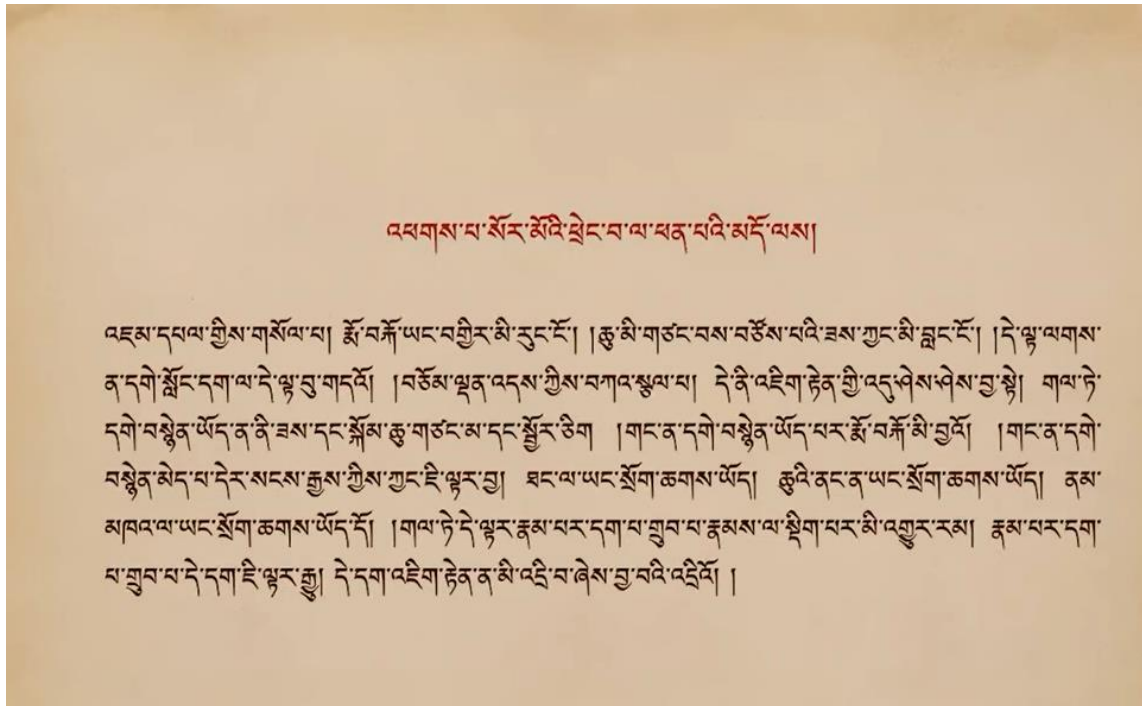 འཕགས་པ་སོར་མོའི་ཕྲེང་བ་ལ་ཕན་པའི་མདོ་ལས།
འཇམ་དཔལ་གྱིས་གསོལ་པ། རྨོ་བརྐོ་ཡང་བགྱིར་མི་རུང་ངོ་། །ཆུ་མི་གཙང་བས་བཙོས་པའི་ཟས་ཀྱང་མི་བླང་ངོ་། །དེ་ལྟ་ལགས་
ན་དགེ་སློང་དག་ལ་དེ་ལྟ་བུ་གདའོ། །བཅོམ་ལྡན་འདས་ཀྱིས་བཀའ་སྩལ་པ། དེ་ནི་འཇིག་རྟེན་གྱི་འདུ་ཤེས་ཤེས་བྱ་སྟེ། གལ་ཏེ་
དགེ་བསྙེན་ཡོད་ན་ནི་ཟས་དང་སྐོམ་ཆུ་གཙང་མ་དང་སྦྱོར་ཅིག །གང་ན་དགེ་བསྙེན་ཡོད་པར་རྨོ་བརྐོ་མི་བྱའོ། །གང་ན་དགེ་
བསྙེན་མེད་པ་དེར་སངས་རྒྱས་ཀྱིས་ཀྱང་ཇི་ལྟར་བྱ། ཐང་ལ་ཡང་སྲོག་ཆགས་ཡོད། ཆུའི་ནང་ན་ཡང་སྲོག་ཆགས་ཡོད། ནམ་
མཁའ་ལ་ཡང་སྲོག་ཆགས་ཡོད་དོ། །གལ་ཏེ་དེ་ལྟར་རྣམ་པར་དག་པ་གྲུབ་པ་རྣམས་ལ་སྡིག་པར་མི་འགྱུར་རམ། རྣམ་པར་དག་
པ་གྲུབ་པ་དེ་དག་ཇི་ལྟར་རྒྱུ། དེ་དག་འཇིག་རྟེན་ན་མི་འདྲི་བ་ཞེས་བྱ་བའི་འདྲིའོ། །